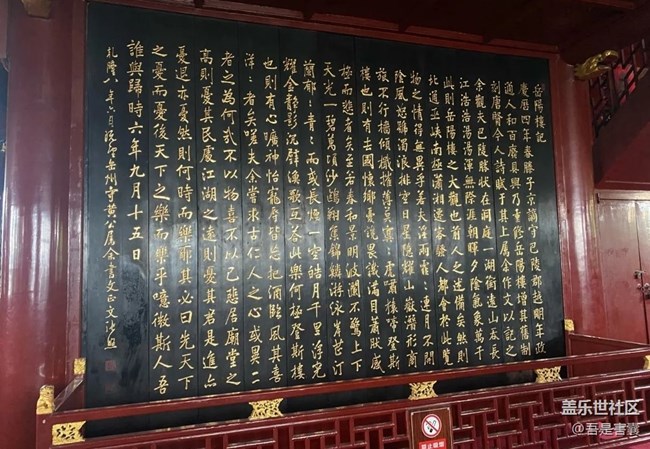 岳陽樓記
慶曆四年春滕子京謫守巴陵郡越明年政
通人和百廢具興乃重修岳陽樓增其舊制
刻唐賢今人詩賦于其上屬余作文以記之
余觀夫巴陵勝狀在洞庭一湖銜遠山吞長
江浩浩湯湯橫無際涯朝暉夕陰氣象萬千
此則岳陽樓之大觀也前人之述備矣然則
北通巫峽南極瀟湘遷客騷人都會於此覽
物之情得無異乎若夫霪雨霏:連月不開
陰風怒號濁浪排空日星隱耀山嶽潛形商
旅不行檣傾楫摧薄暮冥:虎嘯猿啼登斯
樓也則有去國懷鄉憂讒畏譏滿目蕭然感
極而悲者矣至若春和景明波瀾不驚上下
天光一碧萬頃沙鷗翔集錦鱗游泳岸芷汀
蘭郁:青:而或長煙一空皓月千里浮光
耀金靜影沉璧漁歌互答此樂何極登斯樓
也則有心曠神怡寵辱皆忘把酒臨風其喜
洋:者矣嗟夫余嘗求古仁人之心或異二
者之為何哉不以物喜不以己悲居廟堂之
高則憂其民處江湖之遠則憂其君是進亦
憂退亦憂然則何時而樂耶其必曰先天下
之憂而憂後天下之樂而樂乎噫微斯人吾
誰與歸時六年九月十五日
乾隆八年六月岳州守黃公屬余書文正文張照
盖乐世社区
@吾是書囊